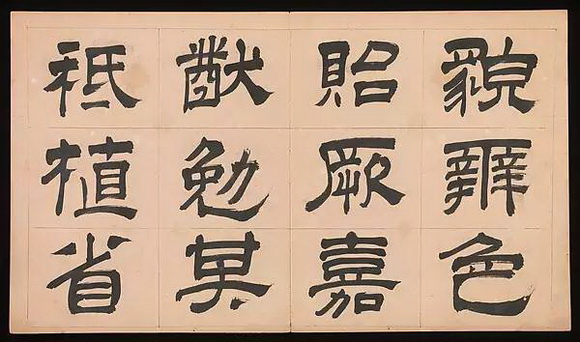 貌辨色
貽厥嘉
猷勉其
祗植省